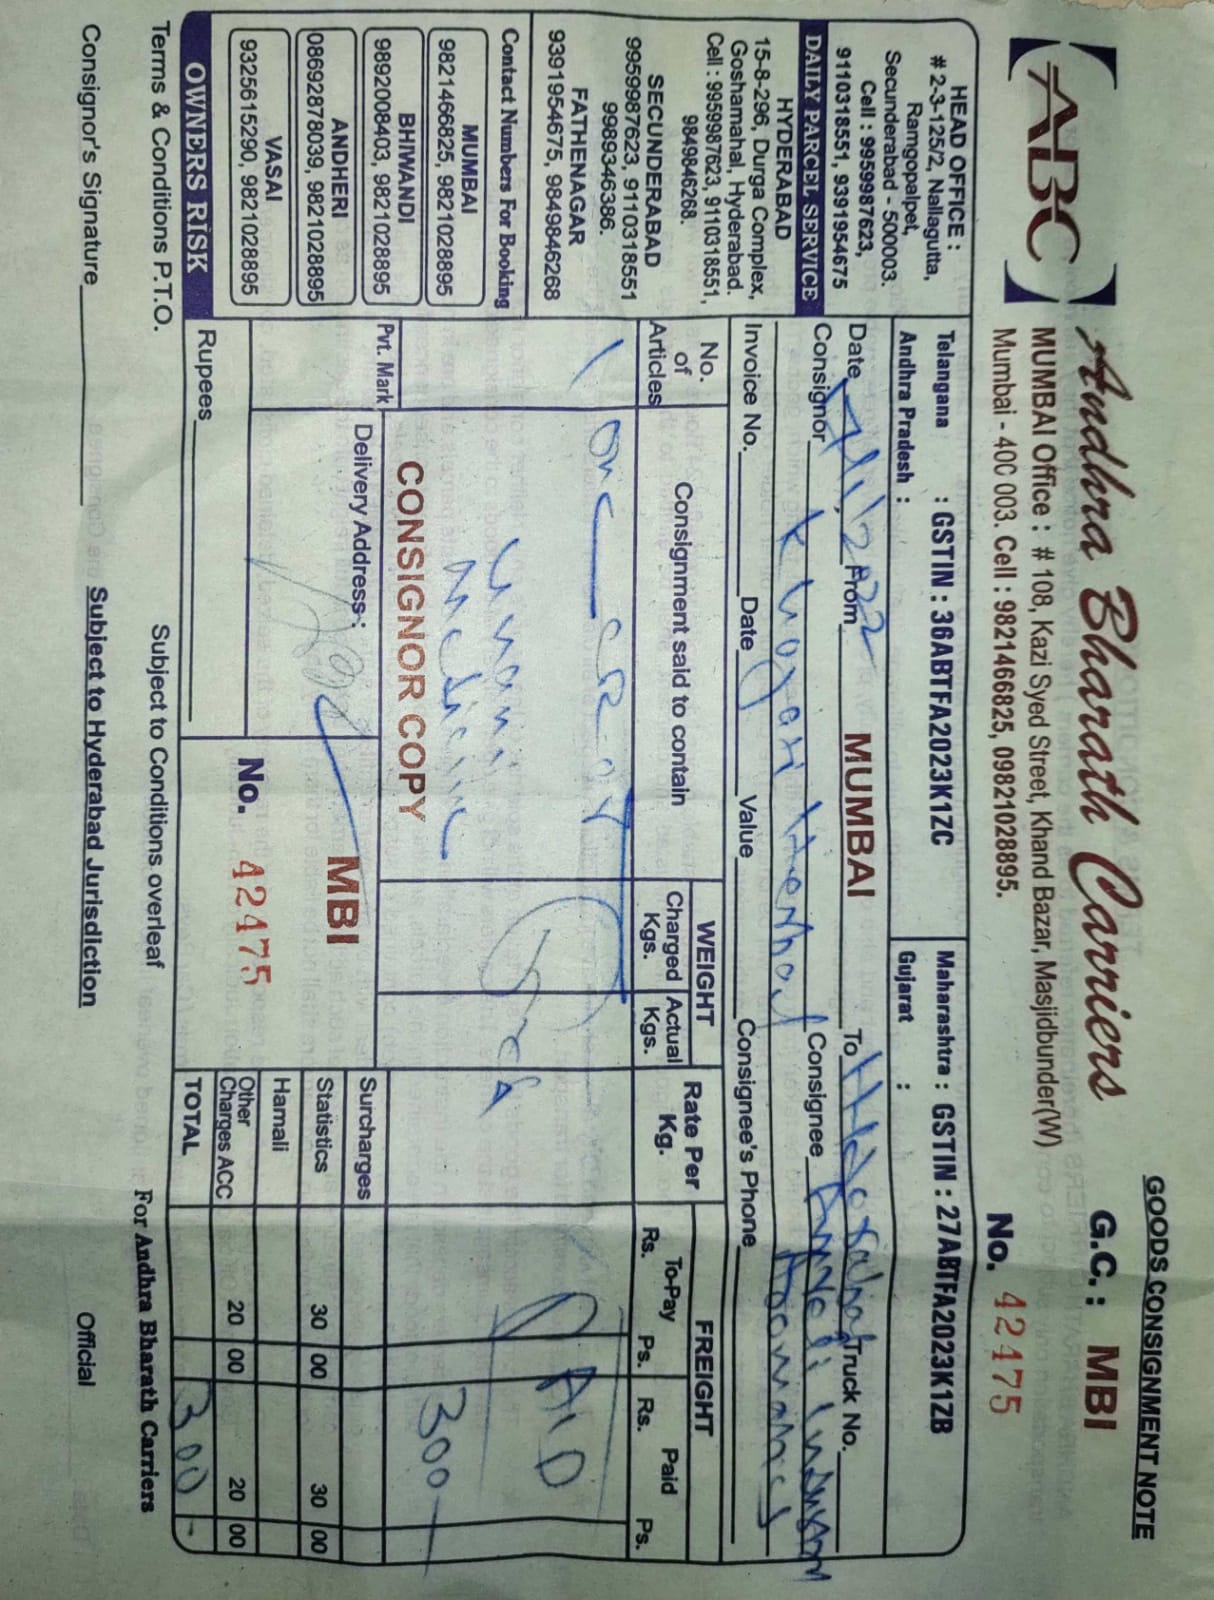 GOODS CONSIGNMENT NOTE
ABC
Andhra Bharath Carriers
G.C.: MBI
MUMBAI Office : # 108, Kazi Syed Street, Khand Bazar, Masjidbunder(W)
Mumbai - 400 003. Cell : 9821466825, 09821028895.
No. 42475
HEAD OFFICE :
# 2-3-125/2, Nallagutta,
Ramgopalpet,
Secunderabad - 500003.
Cell : 9959987623,
9110318551, 9391954675
DAILY PARCEL SERVICE
HYDERABAD
15-8-296, Durga Complex,
Goshamahal, Hyderabad.
Cell : 9959987623, 9110318551,
9849846268.
SECUNDERABAD
9959987623, 9110318551
9989346386.
FATHENAGAR
9391954675, 9849846268
Contact Numbers For Booking
MUMBAI
9821466825, 9821028895
BHIWANDI
9892008403, 9821028895
ANDHERI
08692878039, 9821028895
VASAI
9325615290, 9821028895
OWNERS RISK
Telangana : GSTIN : 36ABTFA2023K1ZC
Andhra Pradesh :
Maharashtra : GSTIN : 27ABTFA2023K1ZB
Gujarat :
Date From MUMBAI To Truck No.
Consignor Consignee
Invoice No. Date Value Consignee's Phone
No. of Articles
Consignment said to contain
WEIGHT
Charged Kgs.
Actual Kgs.
Rate Per Kg.
FREIGHT
To-Pay
Rs. Ps.
Paid
Rs. Ps.
1
one
unani
PAID
300
CONSIGNOR COPY
Pvt. Mark
Delivery Address :
MBI
No. 42475
Surcharges
Statistics 30 00 30 00
Hamali
Other Charges ACC 20 00 20 00
TOTAL 300 -
Rupees
Terms & Conditions P.T.O.
Subject to Conditions overleaf
For Andhra Bharath Carriers
Consignor's Signature
Subject to Hyderabad Jurisdiction
Official